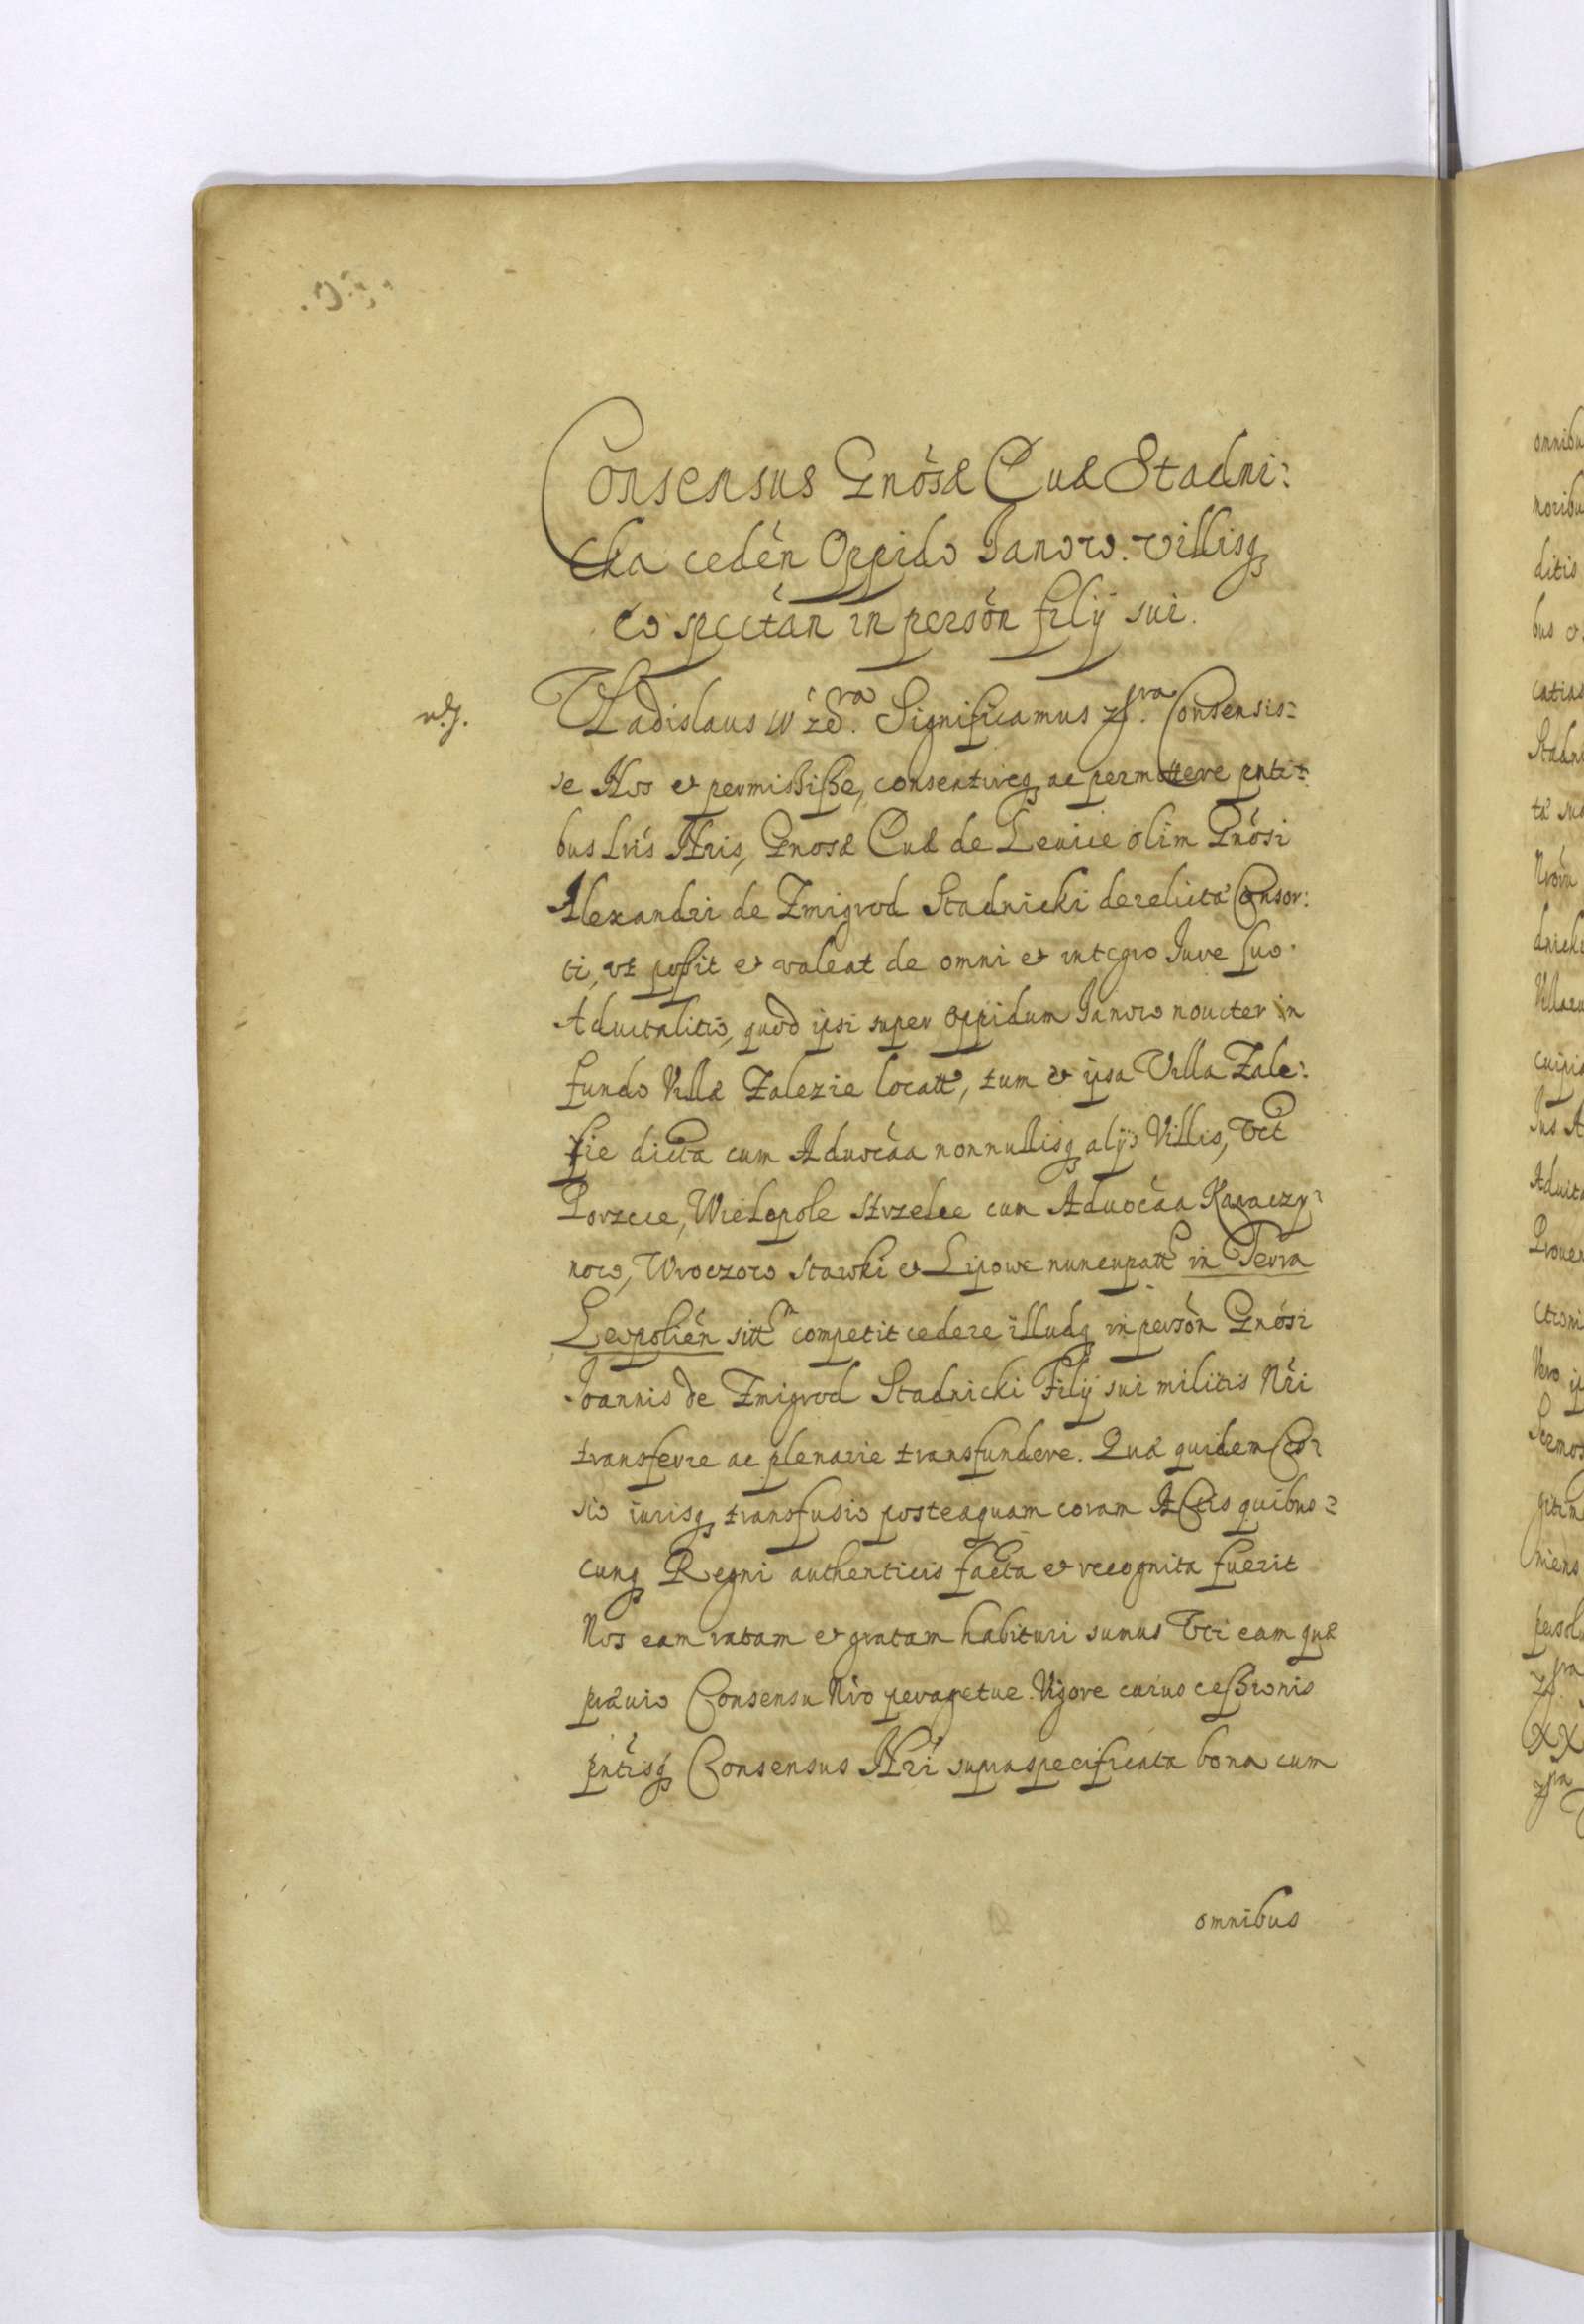 Consensus Gnosæ Evæ Stadni:
cka cedén Oppido Janow. villisq
eo spectán in persón filÿ sui.
Vladislaus IV zð.ra Significamus zſ.ra Consensis-
se Nos et permisißße, consentireq ac permittere pnti-
bus Lrís Nris, Gnosæ Evæ de Leuice olim Gnósi
Alexandri de Zmigrod Stadnicki derelictæ Consor:
ti, vt poſsit et valeat de omni et integro Jure ſuo
Aduitalitio, quod ipsi super oppidum Janow nouiter in
fundo Villæ Zalezie locatt, tum et ipsa Villa Zale:
ſie dicta cum Aduocáa nonnullisq alÿs Villis, vtt
Porzcie, Wielopole Strzelce cum Aduocáa Karaczy-
now, Wroczow Stawki et Lipowc nuncupatt in Terra
Leopolién sitt competit cedere illudq in persón Gnósi
Joannis de Zmigrod Stadnicki Filÿ sui militis Nri
transferre ac plenarie transfundere. Quæ quidem Ces-
sio iurisq transfusio posteaquam coram Actis quibus-
cunq Regni authenticis facta et recognita fuerit
Nos eam ratam et gratam habituri sumus Vti eam quæ
præuio Consensu Nro peragetur. Vigore cuius ceßionis
pntisq Consensus Nri supraspecificata bona cum
omnibus